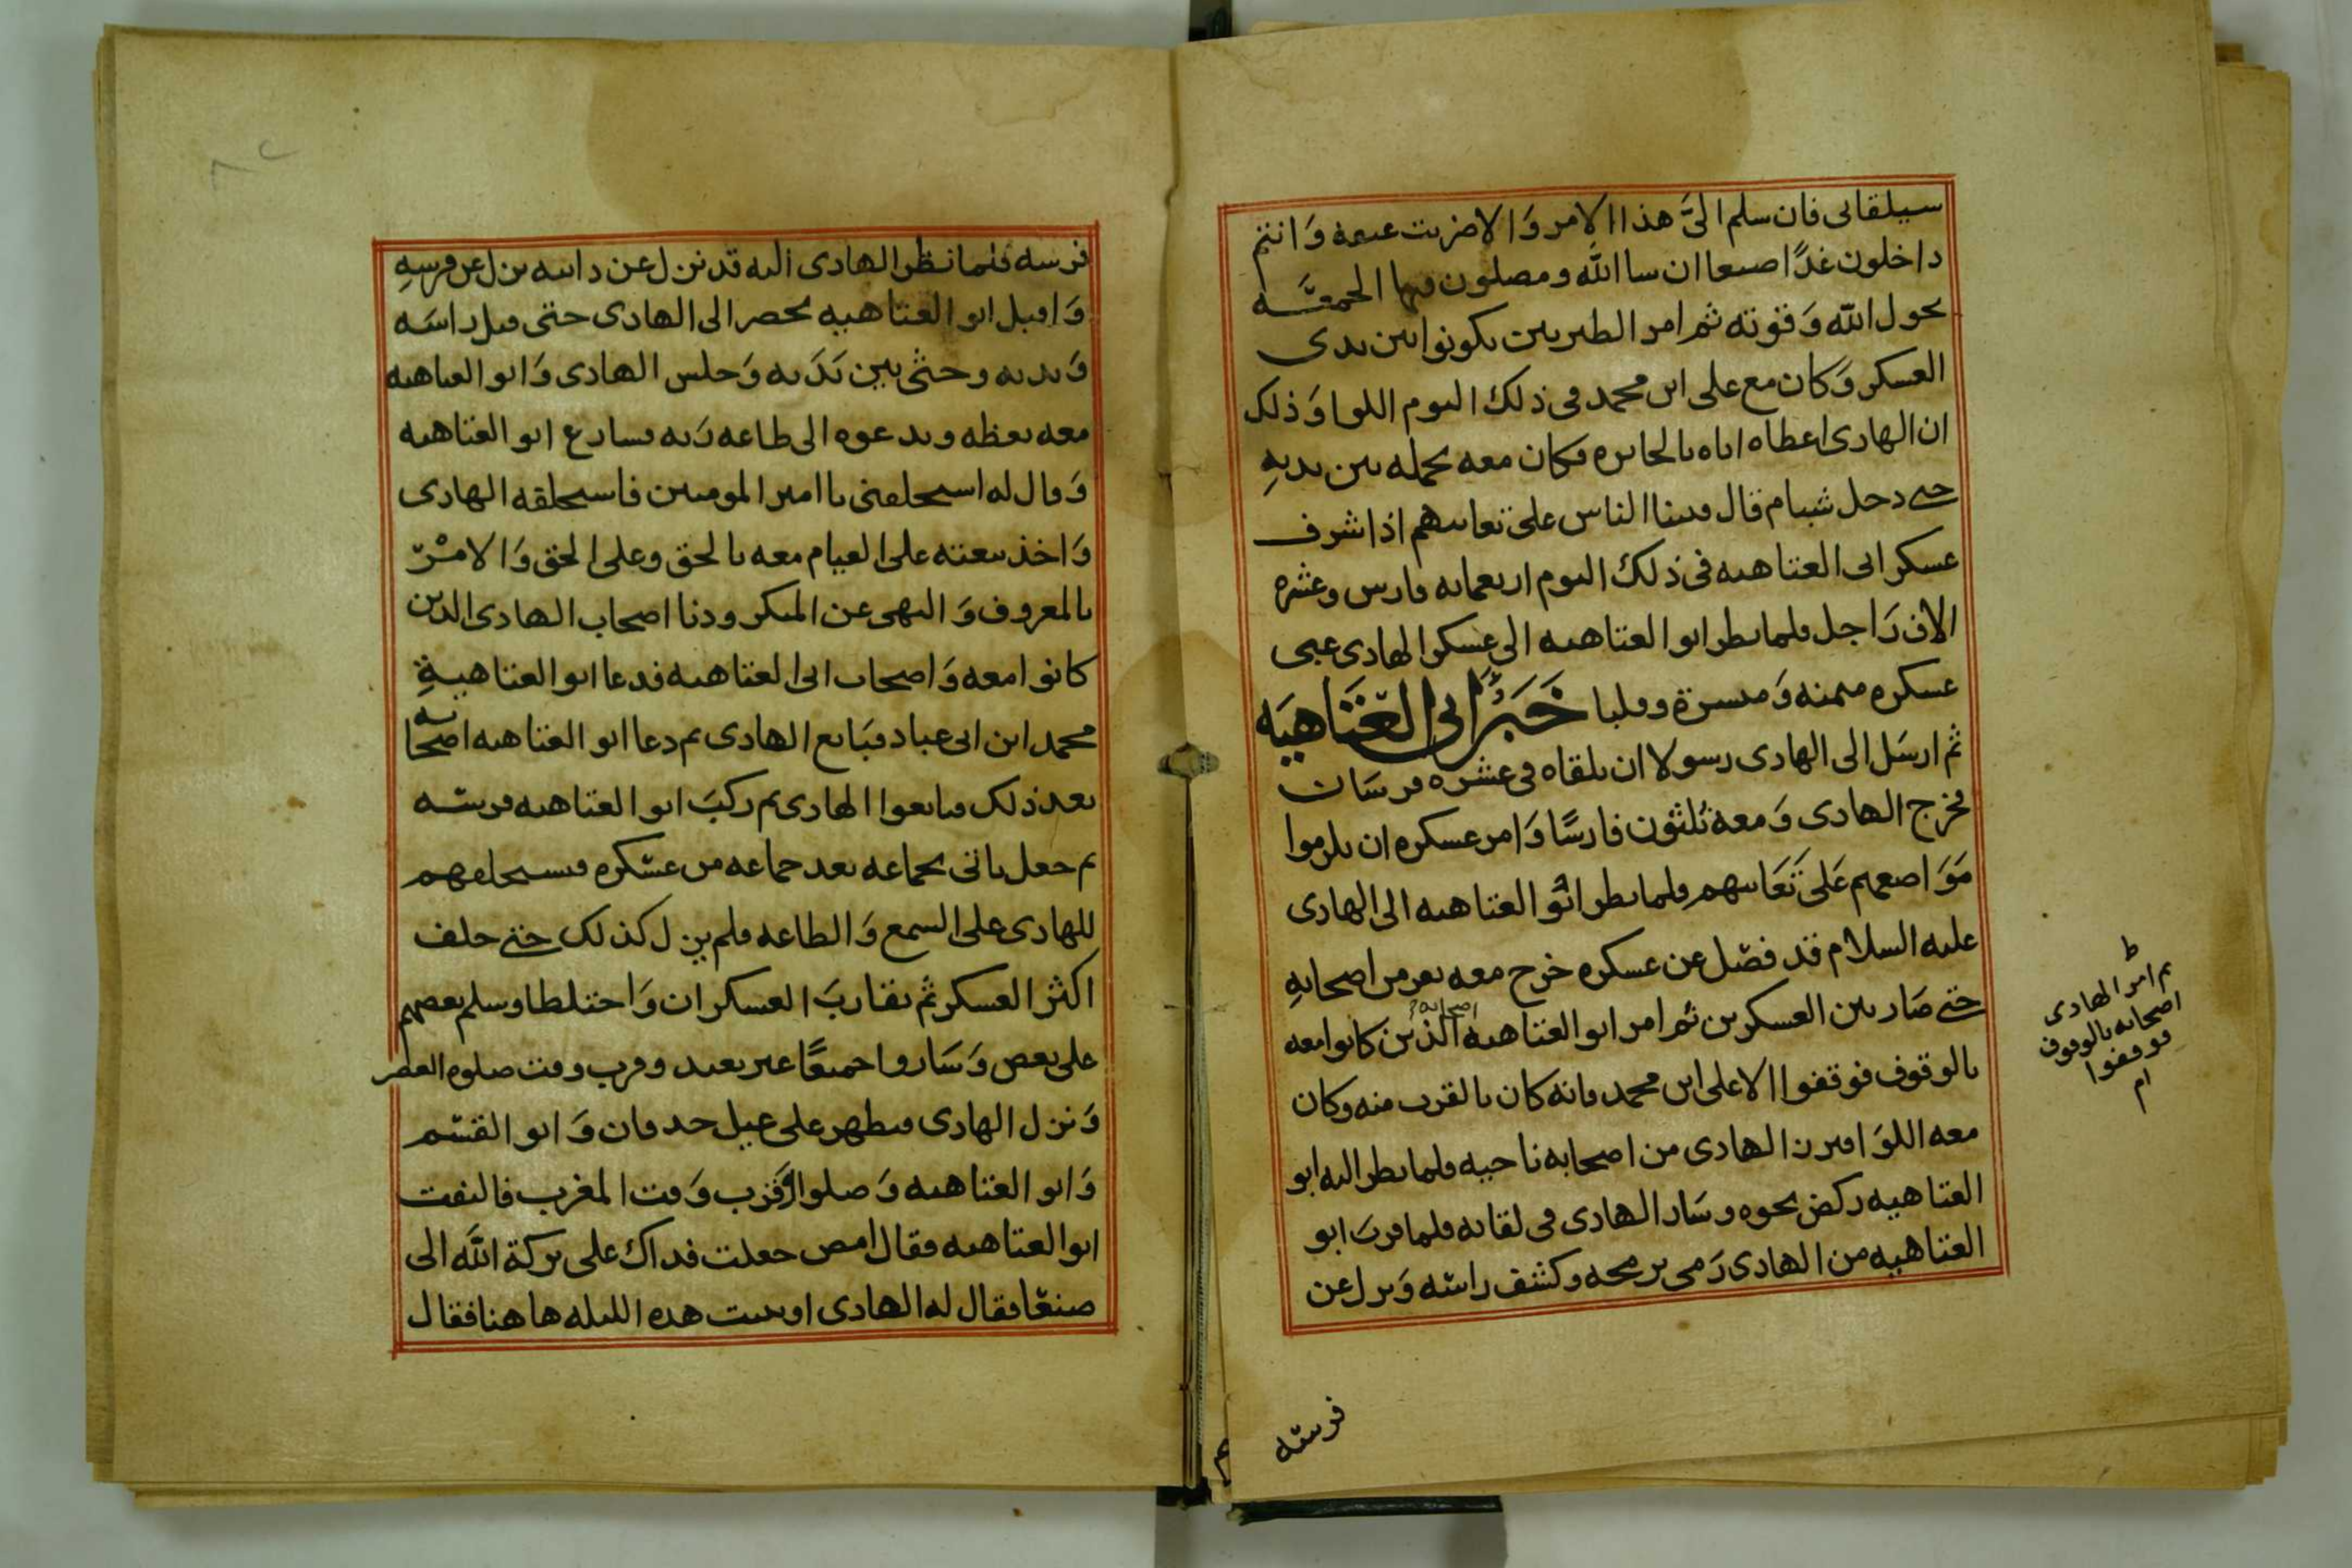 سيلقانى فان سلم الىَّ هذا الامر وَالا ضربت عنقه وَانتم
داخلون غدًا صنعا ان سا اللّه ومصلون فيها الجمعَــه
بحول اللّه وَقوته ثم امر الطبريين يكونوا بين يدى
العسكر وَكان مع على ابن محمد فى ذلك اليوم اللوا وَذلك
ان الهادى اعطاه اياه بالحايره فكان معه يحمله بين يديهِ
حتى دخل شبام قال فبينا الناس على تعابيهم اذ اشرف
عسكر ابى العتاهيه فى ذلك اليوم اربعمايه فارس وعشره
الاف رَاجل فلما نظر ابو العتاهيه الى عسكر الهادى عبى
عسكره ميمنه وَميسرة وقلبا خَبَرُ ابى العَتَاهِيَه
ثم ارسَل الى الهادى رسولا ان يلقاه فى عشره فرسَان
فخرج الهادى وَمعه ثلثون فارسًا وَامر عسكره ان يلزموا
مَوَاضعهم عَلى تَعَابيهم فلما نظر ابُو العتاهيه الى الهادى
عليه السلام قد فصل عن عسكره خرج معه نفر من اصحابهِ
حتى صَار بين العسكرين ثم امر ابو العتاهيه اصحابه الذين كانوا معه
بالوقوف فوقفوا الا على ابن محمد فانه كان بالقرب منه وكان
معه اللوَا فبرز الهادى من اصحابه ناحيه فلما نظر اليه ابو
العتاهيه ركض نحوه وسَار الهادى فى لقايه فلما قربَ ابو
العتاهيه من الهادى رَمى برمحه وكشف راسَه وَنزل عن
ط
ثم امر الهادى
اصحابه بالوقوف
فوقفوا
ام
فرسه
فرسه فلما نظر الهادى اليه قد نزل عن دابته نزل عن فرسهِ
وَاقبل ابو العتاهيه يحضر الى الهادى حتى قبل راسَه
وَيديه وجثى بين يَدَيه وَجلس الهادى وَابو العتاهيه
معه يعظه ويدعوه الى طاعه رَبه فسارع ابو العتاهيه
وَقال له استحلفنى يا امير المومنين فاستحلفه الهادى
وَاخذ بيعته على القيام معه بالحق وعلى الحق وَالامْر
بالمعروف وَالنهى عن المنكر ودنا اصحاب الهادى الذين
كانوا معه وَاصحاب ابى العتاهيه فدعا ابو العتاهيةِ
محمد ابن ابى عباد فبَايع الهادى ثم دعا ابو العتاهيه اصحابه
بعد ذلك فبايعوا الهادى ثم ركبَ ابو العتاهيه فرسَــه
ثم جعل ياتى بجماعه بعد جماعه من عسكره فيستحلفهم
للهادى على السمع وَالطاعه فلم يزل كذلك حتى حلف
اكثر العسكر ثم تقاربَ العسكران وَاختلطا وسلم بعضهم
على بعض وَسَاروا جميعًا غير بعيد وقرب وقت صلوه العصر
وَنزل الهادى فتطهر على غيل حدقان وَابو القسم
وَابو العتاهيه وَصلوا وَقرب وَقت المغرب فالتفت
ابو العتاهيه فقال امض جعلت فداك على بركة اللّه الى
صنعا فقال له الهادى او نبيت هذه الليله هاهنا فقال